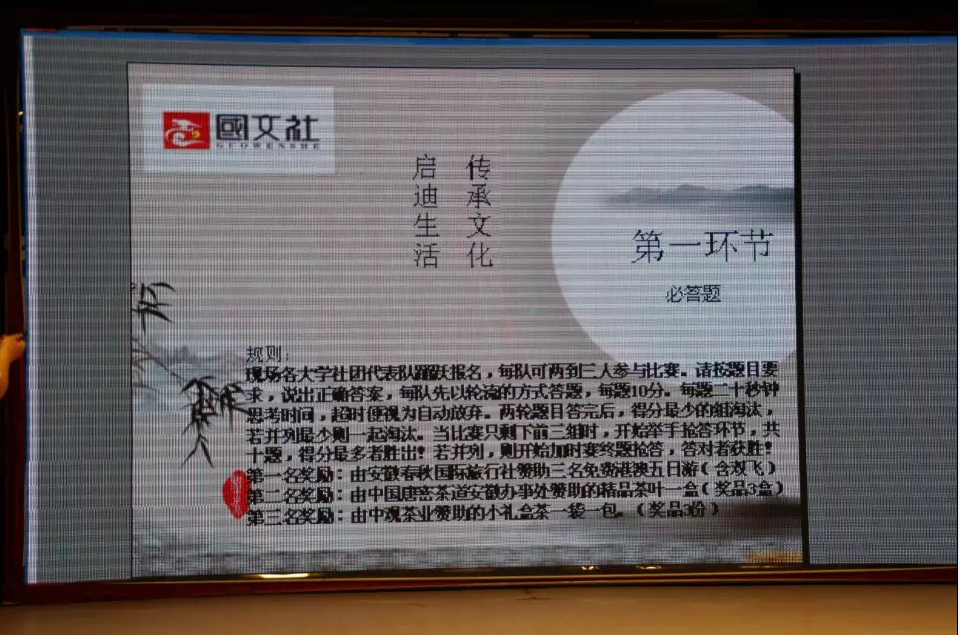 國文社
GUOWENSHE
传承文化
启迪生活
第一环节
必答题
规则：
现场各大学社团代表队踊跃报名，每队可两到三人参与比赛。请按题目要
求，说出正确答案，每队先以轮流的方式答题，每题10分。每题二十秒钟
思考时间，超时便视为自动放弃。两轮题目答完后，得分最少的组淘汰，
若并列最少则一起淘汰。当比赛只剩下前三组时，开始举手抢答环节，共
十题，得分最多者胜出！若并列，则开始加时赛终题抢答，答对者获胜！
第一名奖励：由安徽春秋国际旅行社赞助三名免费港澳五日游（含双飞）
第二名奖励：由中国唐密茶道安徽办事处赞助的精品茶叶一盒（奖品3盒）
第三名奖励：由中观茶业赞助的小礼盒茶一袋一包。（奖品3份）